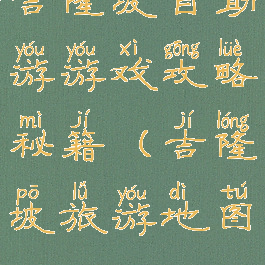 吉隆坡自助
yóu yóu xì gōng lüè
游游戏攻略
mì jí jí lóng
秘籍(吉隆
pō lǚ yóu dì tú
坡旅游地图